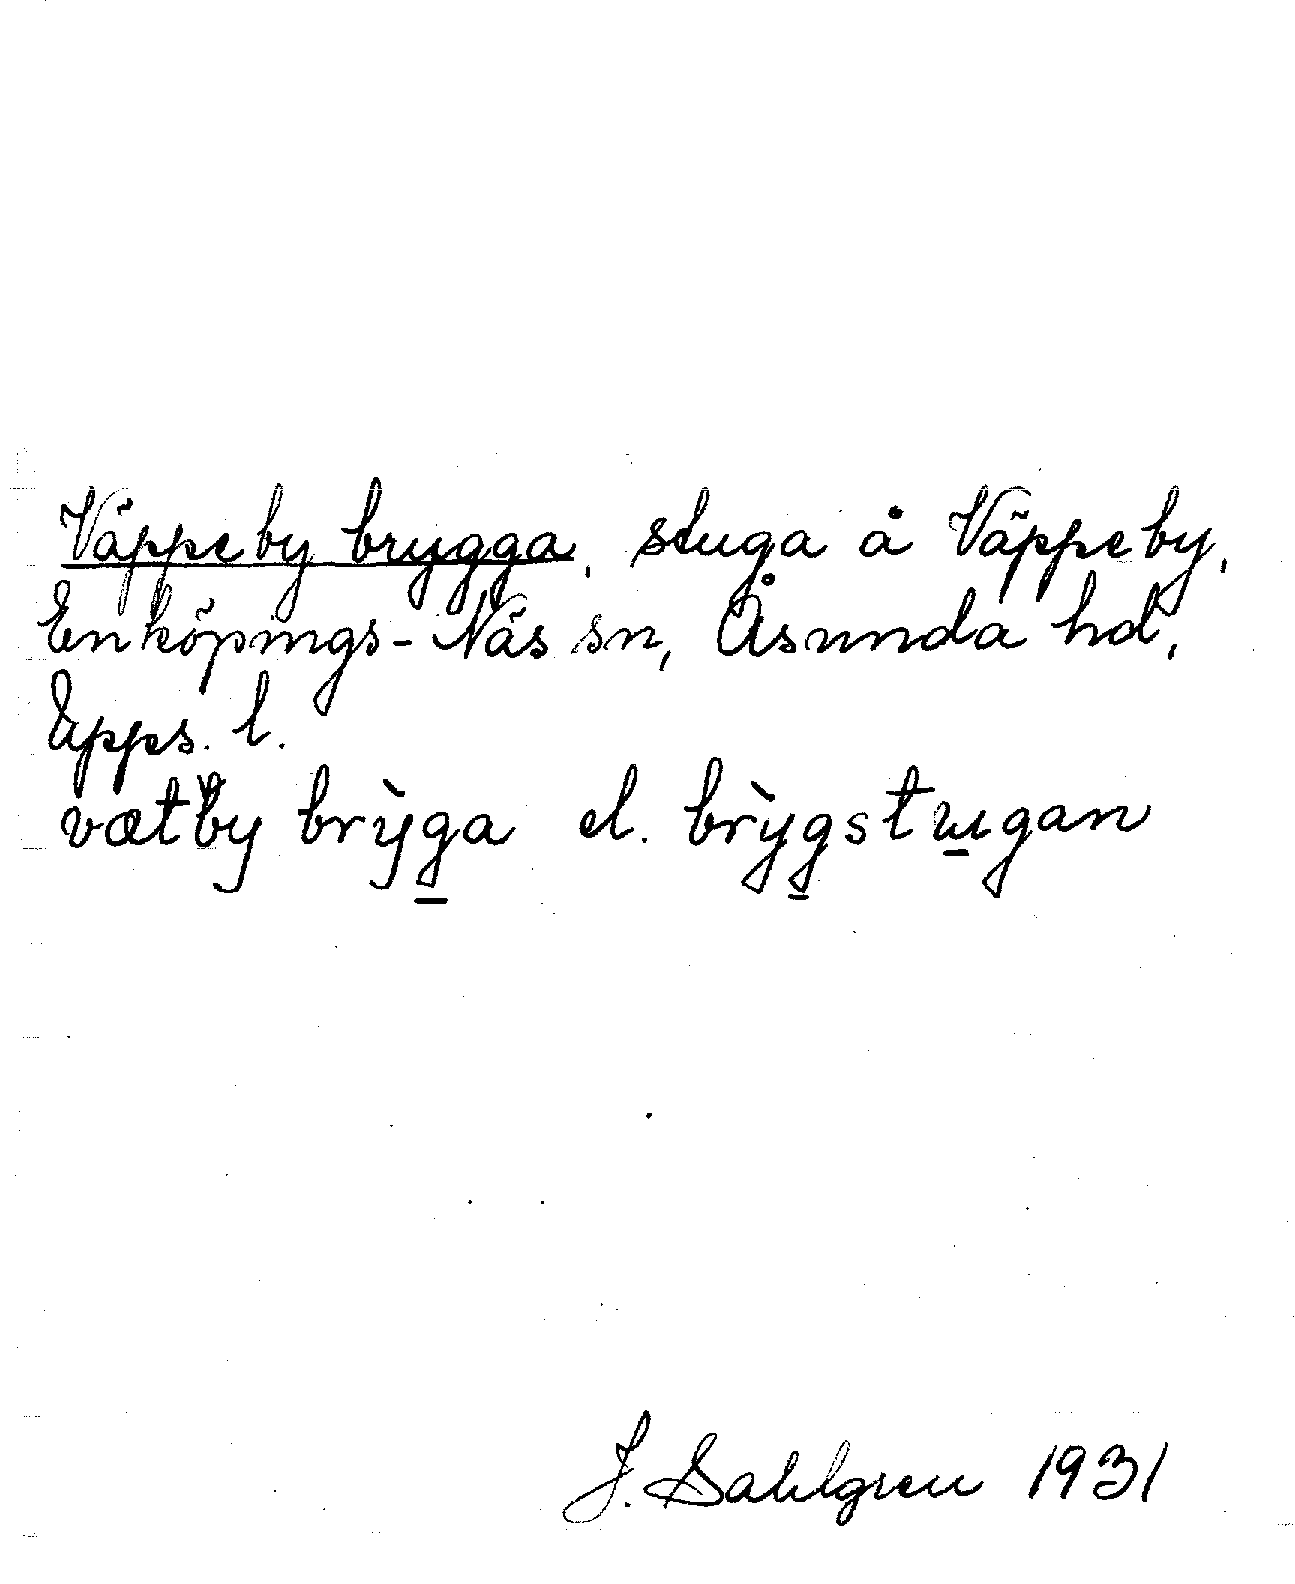 Väppeby brygga, stuga å Väppeby,
Enköpings-Näs sn, Åsunda hd,
Upps. l.
vætby brỳg̲a el. brỳg̲stɯ̲gan
J. Sahlgren 1931